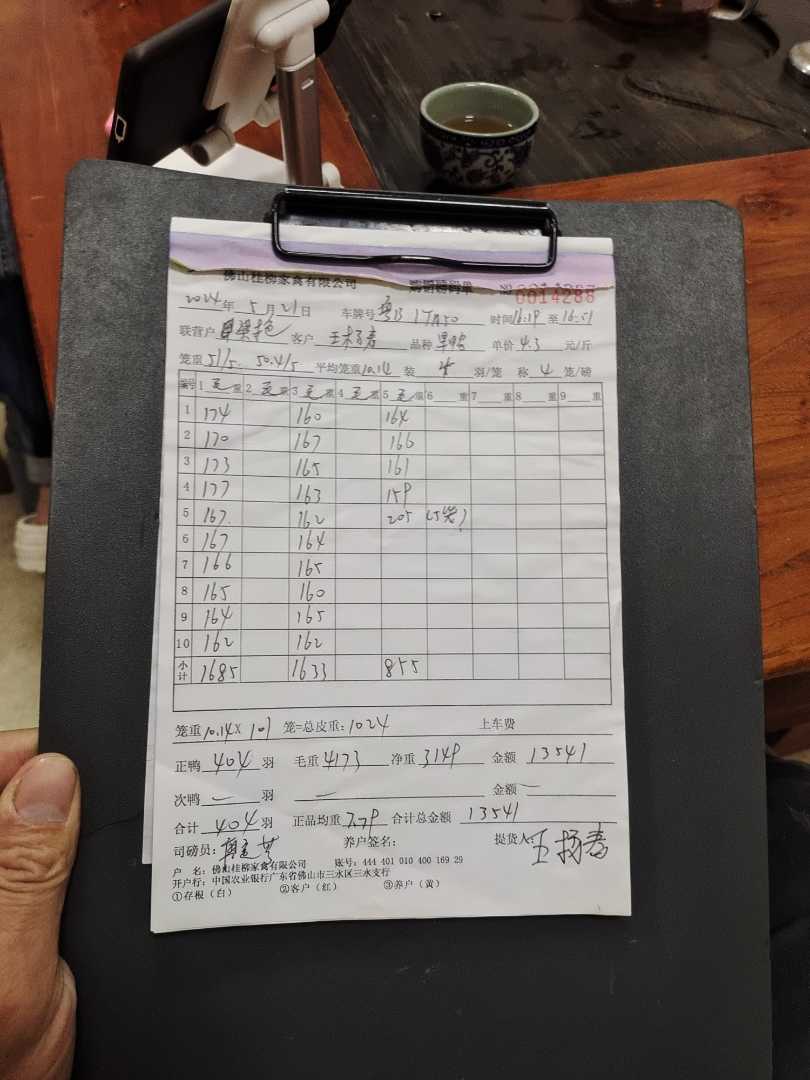 佛山桂柳家禽有限公司 购销磅码单 № 0014288
2024年 5月21日 车牌号 粤B 1TA50 时间 16:19 至 16:51
联营户 客户 王扬春 品种 单价 4.3 元/斤
笼重 51/5. 50.4/5 平均笼重 10.14 装 4 羽/笼 称 4 笼/磅
编号 1 毛 重 2 毛 重 3 毛 重 4 毛 重 5 毛 重 6 重 7 重 8 重 9 重
1 174 160 164
2 170 167 166
3 173 165 161
4 177 163 159
5 167. 162 205 (5笼)
6 167 164
7 166 165
8 165 160
9 164 165
10 162 162
小计 1685 1633 855
笼重 10.14 × 101 笼=总皮重: 1024 上车费
正鸭 404 羽 毛重 4173 净重 3149 金额 13541
次鸭 — 羽 — 金额 —
合计 404 羽 正品均重 7.79 合计总金额 13541
司磅员: 养户签名: 提货人: 王扬春
户 名: 佛山桂柳家禽有限公司 账号: 444 401 010 400 169 29
开户行: 中国农业银行广东省佛山市三水区三水支行
①存根（白） ②客户（红） ③养户（黄）